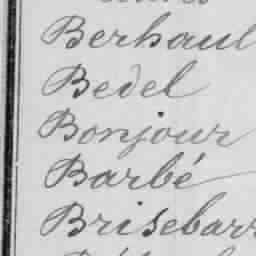 Berhaul
Bedel
Bonjour
Barbé
Brisebarr